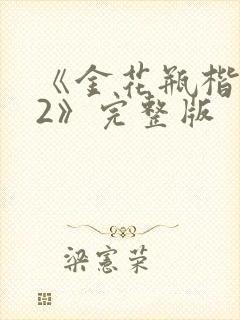 《金花瓶楷
2》完整版
梁宪荣